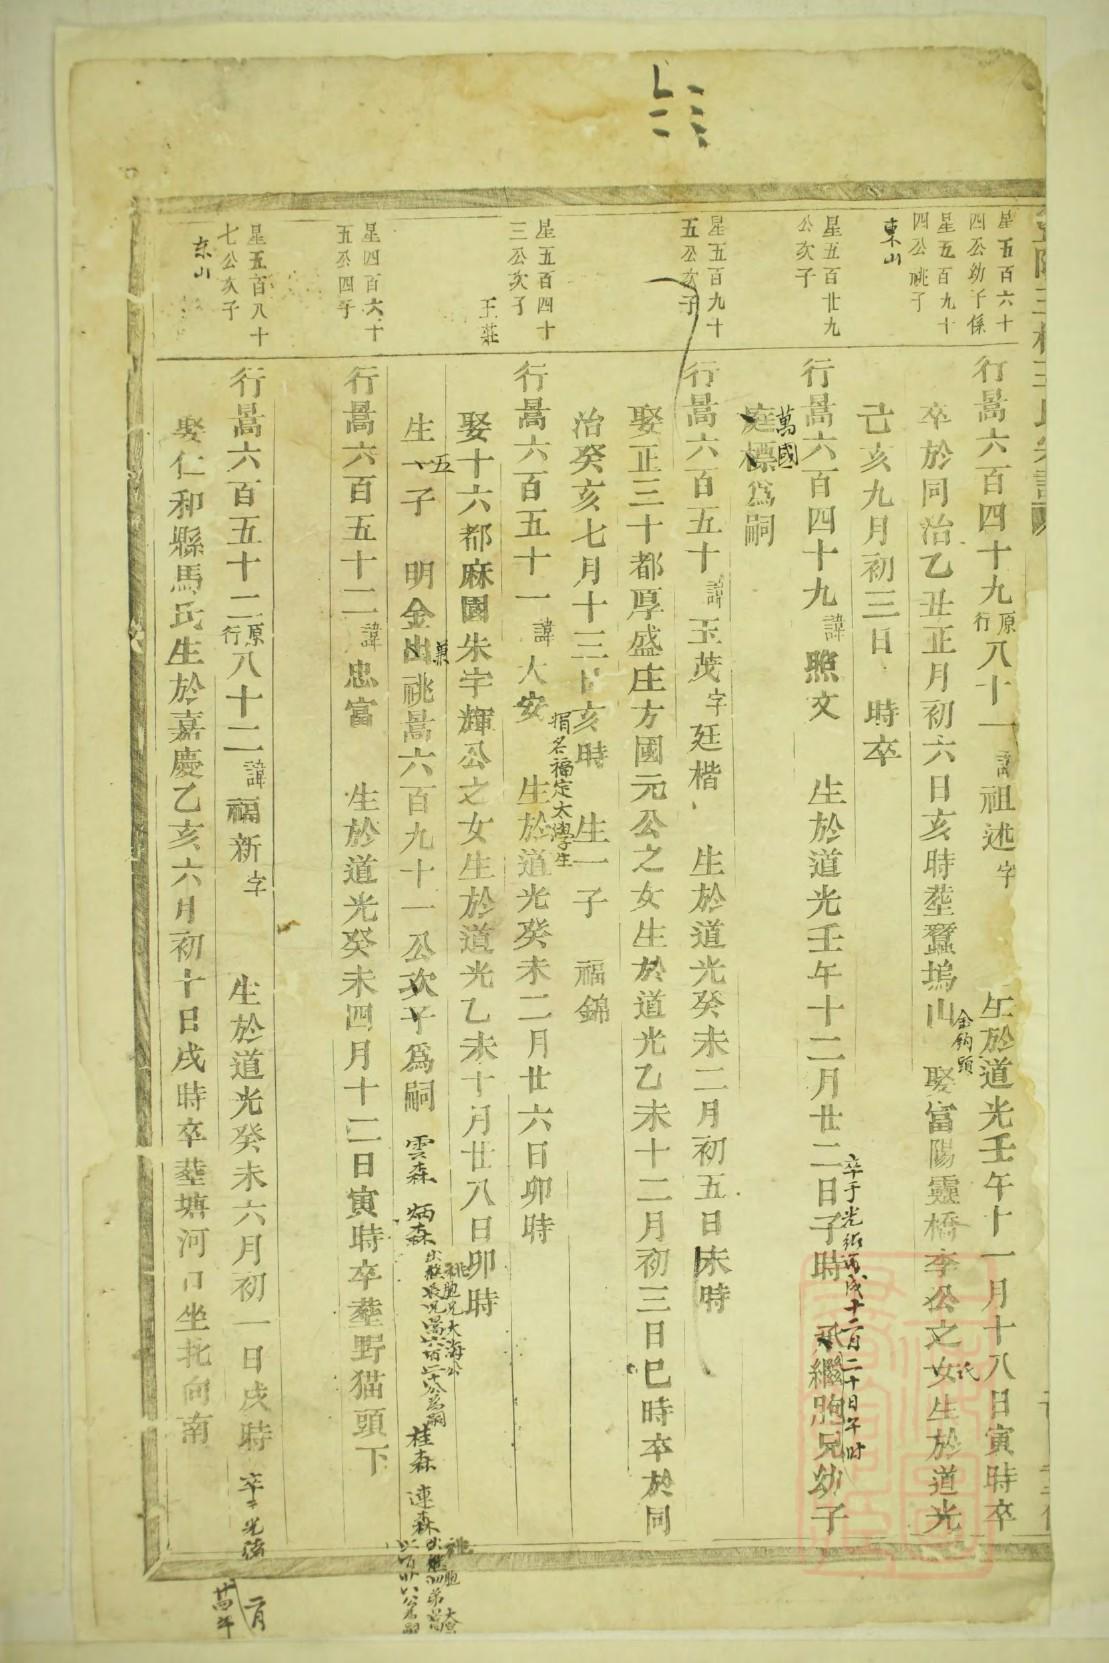 星五百六十
四公幼子係
星五百九十
四公祧子
東山
星五百廿九
公次子
星五百九十
五公次子
星五百四十
三公次子
王莊
星四百六十
五公四子
星五百八十
七公次子
东山
行暠六百四十九原行八十一諱祖述字 生於道光壬午十一月十八日寅時卒
卒於同治乙丑正月初六日亥時塟蠶塢山 娶富陽靈橋李公之女生於道光
金鈎頭
氏
己亥九月初三日 時卒
行暠六百四十九諱照文 生於道光壬午十二月廿二日子時 承繼胞兄幼子
卒于光緒丙戌十二月二十日午时
萬國
庭標爲嗣
行暠六百五十諱玉茂字廷楷 生於道光癸未二月初五日未時
娶正三十都厚盛庄方國元公之女生於道光乙未十二月初三日巳時卒於同
治癸亥七月十三日亥時 生一子 福錦
行暠六百五十一諱大安 生於道光癸未二月廿六日卯時
捐名福定太學生
娶十六都麻園朱宇輝公之女生於道光乙未十月廿八日卯時
生一子 明金出祧暠六百九十一公次子爲嗣 雲森 炳森 桂森 連森
五
兼
祧胞兄大海公
行暠六百五十二諱忠富 生於道光癸未四月十二日寅時卒塟野猫頭下
行暠六百五十二原行八十二諱福新字 生於道光癸未六月初一日戌時 卒 光緒
二月
廿四年
娶仁和縣馬氏生於嘉慶乙亥六月初十日戌時卒塟塘河口坐北向南